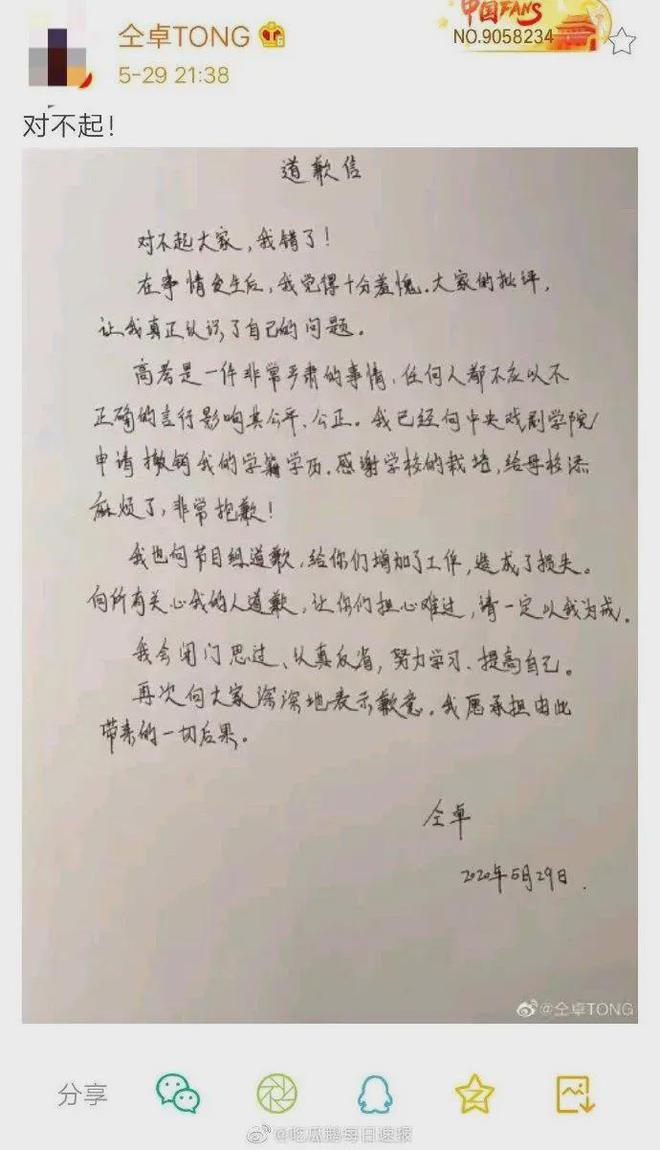 仝卓TONG
中国FANS
NO.9058234
5-29 21:38
对不起！
道歉信
对不起大家，我错了！
在事情发生后，我觉得十分羞愧。大家的批评，
让我真正认识了自己的问题。
高考是一件非常严肃的事情，任何人都不应以不
正确的言行影响其公平、公正。我已经向中央戏剧学院
申请撤销我的学籍学历。感谢学校的栽培，给母校添
麻烦了，非常抱歉！
我也向节目组道歉，给你们增加了工作，造成了损失。
向所有关心我的人道歉，让你们担心难过，请一定以我为戒。
我会闭门思过、认真反省，努力学习、提高自己。
再次向大家深深地表示歉意。我愿承担由此
带来的一切后果。
仝卓
2020年5月29日.
@仝卓TONG
分享
@吃瓜鹅每日速报